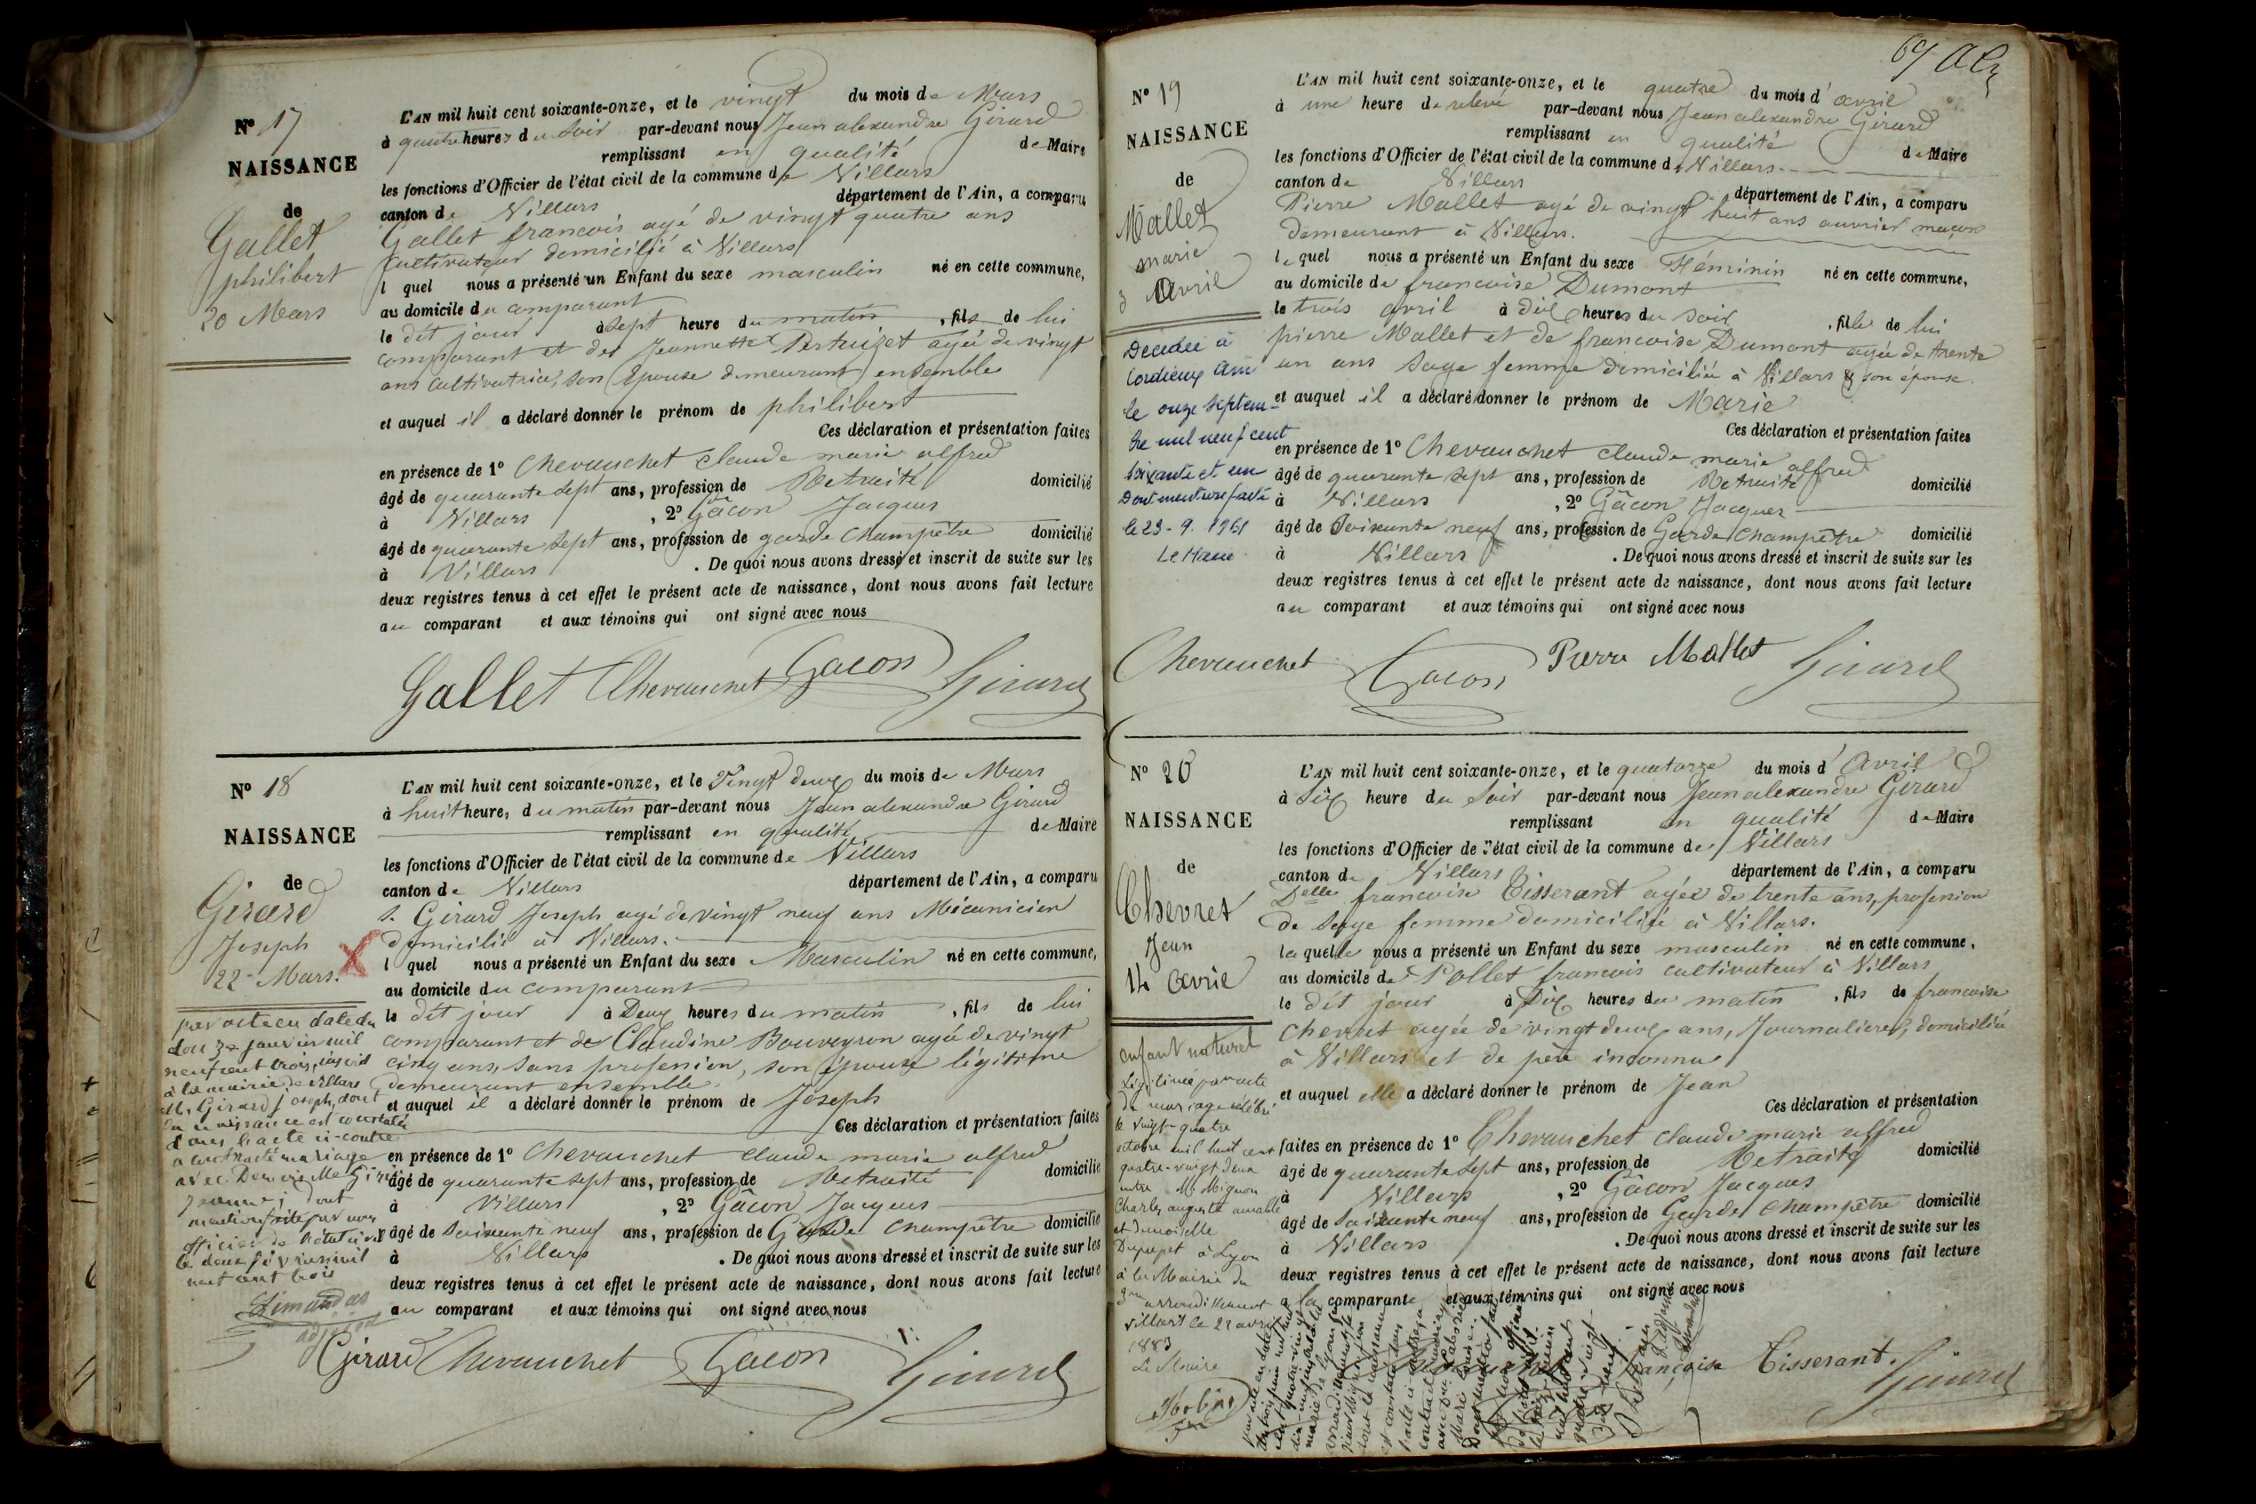 Nº 17
NAISSANCE
de
Gallet
philibert
20 Mars
L'AN mil huit cent soixante-onze, et le vingt du mois de Mars
à quatre heures du soir par-devant nous Jean alexandre Girard
remplissant en qualité de Maire
les fonctions d'Officier de l'état civil de la commune de Villars
canton de Villars département de l'Ain, a comparu
Gallet francois agé de vingt quatre ans
Cultivateur domicilié à Villars
l quel nous a présenté un Enfant du sexe masculin né en cette commune,
au domicile du comparant
le dit jour à sept heure du matin, fils de lui
comparant et de Jeannette Pertuizet agée de vingt
ans cultivatrice, son Epouse demeurant ensemble
et auquel il a déclaré donner le prénom de philibert
Ces déclaration et présentation faites
en présence de 1º Chevauchet claude marie alfred
âgé de quarante sept ans, profession de Retraité domicilié
à Villars, 2º Gâcon Jacques
âgé de quarante sept ans, profession de garde Champêtre domicilié
à Villars. De quoi nous avons dressé et inscrit de suite sur les
deux registres tenus à cet effet le présent acte de naissance, dont nous avons fait lecture
au comparant et aux témoins qui ont signé avec nous
Gallet Chevauchet Gacon Girard
Nº 18
NAISSANCE
de
Girard
Joseph
22 Mars.
par acte en date du
douze janvier mil
neuf cent trois, inscrit
à la mairie de Villars
M. Girard Joseph, dont
la naissance est constatée
dans l'acte ci-contre
a contracté mariage
avec Demoiselle
Jeanne; dont
mention faite par nous
officier de l'état civil
le deux février mil
neuf cent trois
L'AN mil huit cent soixante-onze, et le Vingt deux du mois de Mars
à huit heure, du matin par-devant nous Jean alexandre Girard
remplissant en qualité de Maire
les fonctions d'Officier de l'état civil de la commune de Villars
canton de Villars département de l'Ain, a comparu
S. Girard Joseph agé de vingt neuf ans Mécanicien
domicilié à Villars.
l quel nous a présenté un Enfant du sexe Masculin né en cette commune,
au domicile du comparant
le dit jour à Deux heures du matin, fils de lui
comparant et de Claudine Bouveyron agée de vingt
cinq ans, sans profession, son épouse légitime
demeurant ensemble
et auquel il a déclaré donner le prénom de Joseph
Ces déclaration et présentation faites
en présence de 1º Chevauchet claude marie alfred
âgé de quarante sept ans, profession de Retraité domicilié
à Villars, 2º Gâcon Jacques
âgé de Soixante neuf ans, profession de Garde Champêtre domicilié
à Villars. De quoi nous avons dressé et inscrit de suite sur les
deux registres tenus à cet effet le présent acte de naissance, dont nous avons fait lecture
au comparant et aux témoins qui ont signé avec nous
Girard Chevauchet Gacon Girard
Nº 19
NAISSANCE
de
Mallet
marie
3 Avril
Décédée à
Cordieux Ain
le onze septem-
bre mil neuf cent
soixante et un
Dont mention faite
le 23-9.1961
Le Maire
L'AN mil huit cent soixante-onze, et le quatre du mois d'avril
à une heure de relevé par-devant nous Jean alexandre Girard
remplissant en qualité de Maire
les fonctions d'Officier de l'état civil de la commune de Villars
canton de Villars département de l'Ain, a comparu
Pierre Mallet agé de vingt huit ans ouvrier maçon
demeurant à Villars.
le quel nous a présenté un Enfant du sexe Féminin né en cette commune,
au domicile de francoise Dumont
le trois avril à dix heures du soir, fille de lui
pierre Mallet et de francoise Dumont agée de trente
un ans Sage femme domiciliée à Villars son épouse
et auquel il a déclaré donner le prénom de Marie
Ces déclaration et présentation faites
en présence de 1º Chevauchet claude marie alfred
âgé de quarante sept ans, profession de Retraité domicilié
à Villars, 2º Gâcon Jacques
âgé de Soixante neuf ans, profession de Garde Champêtre domicilié
à Villars. De quoi nous avons dressé et inscrit de suite sur les
deux registres tenus à cet effet le présent acte de naissance, dont nous avons fait lecture
au comparant et aux témoins qui ont signé avec nous
Chevauchet Gacon Pierre Mallet Girard
Nº 20
NAISSANCE
de
Chevret
Jean
14 Avril
enfant naturel
Légitimé par acte
de mariage célébré
le vingt-quatre
octobre mil huit cent
quatre-vingt deux
entre Mr Mignon
Charles auguste
et demoiselle
à Lyon
à la Mairie du
3me arrondissement
Villars le 22 avril
1883
Le Maire
L'AN mil huit cent soixante-onze, et le quatorze du mois d'Avril
à Six heure du Soir par-devant nous Jean alexandre Girard
remplissant en qualité de Maire
les fonctions d'Officier de l'état civil de la commune de Villars
canton de Villars département de l'Ain, a comparu
Delle francoise Tisserant agée de trente ans, profession
de Sage femme domiciliée à Villars.
la quelle nous a présenté un Enfant du sexe masculin né en cette commune,
au domicile de Pollet francois cultivateur à Villars
le dit jour à Dix heures du matin, fils de francoise
Chevret agée de vingt deux ans, Journaliere, domiciliée
à Villars et de père inconnu
et auquel elle a déclaré donner le prénom de Jean
Ces déclaration et présentation
faites en présence de 1º Chevauchet claude marie alfred
âgé de quarante sept ans, profession de Retraité domicilié
à Villars, 2º Gâcon Jacques
âgé de Soixante neuf ans, profession de Garde Champêtre domicilié
à Villars. De quoi nous avons dressé et inscrit de suite sur les
deux registres tenus à cet effet le présent acte de naissance, dont nous avons fait lecture
a la comparante et aux témoins qui ont signé avec nous
Françoise Tisserant. Girard